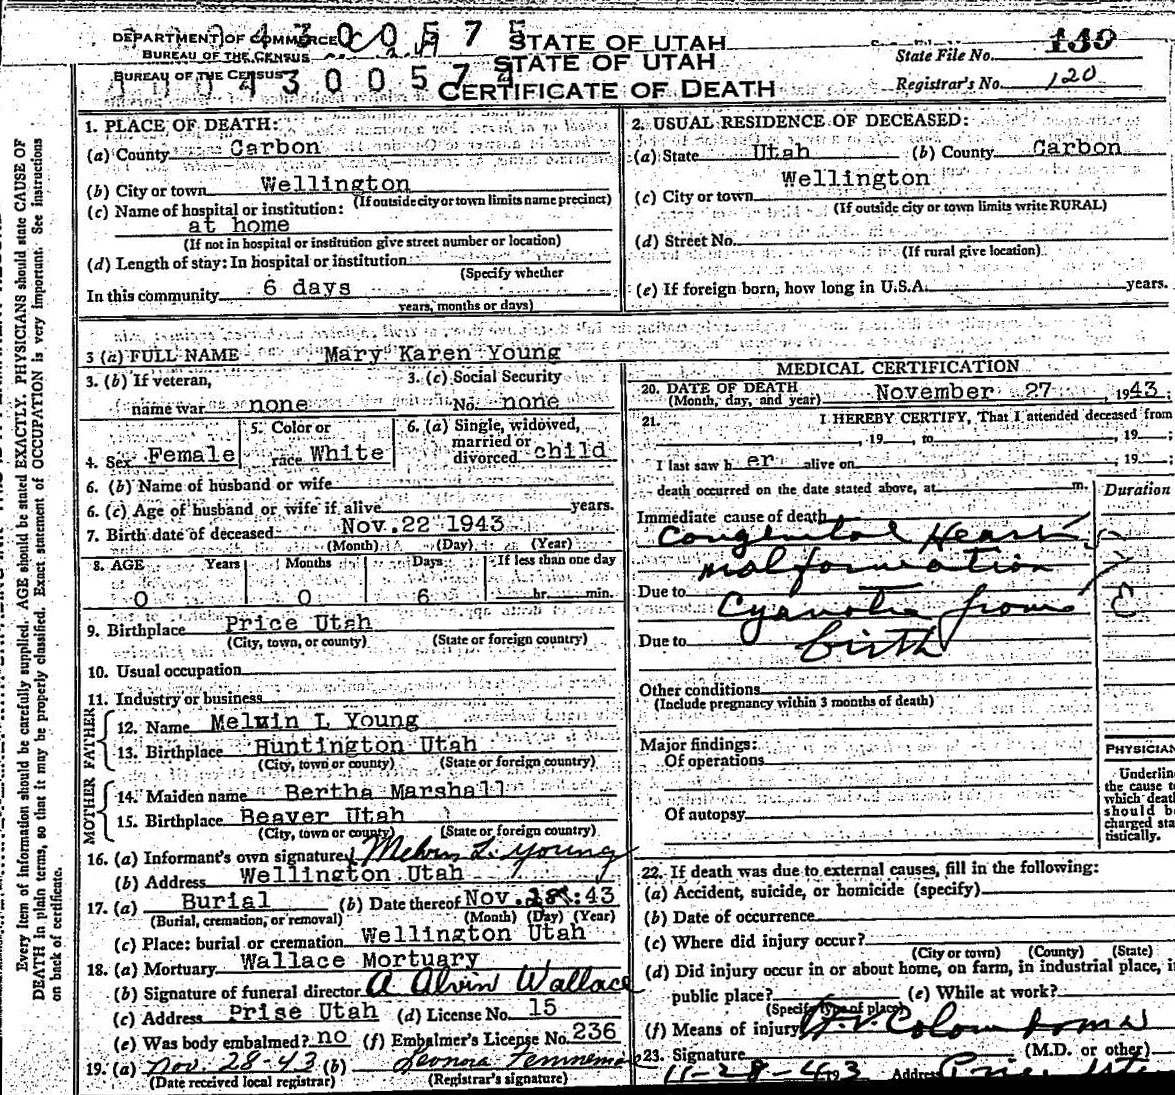 DEPARTMENT OF COMMERCE
BUREAU OF THE CENSUS
BUREAU OF THE CENSUS
STATE OF UTAH
STATE OF UTAH
CERTIFICATE OF DEATH
State File No. 139
Registrar's No. 120
Every item of information should be carefully supplied. AGE should be stated EXACTLY. PHYSICIANS should state CAUSE OF
DEATH in plain terms, so that it may be properly classified. Exact statement of OCCUPATION is very important. See instructions
on back of certificate.
1. PLACE OF DEATH:
(a) County Carbon
(b) City or town Wellington
(If outside city or town limits name precinct)
(c) Name of hospital or institution:
at home
(If not in hospital or institution give street number or location)
(d) Length of stay: In hospital or institution
(Specify whether
In this community 6 days
years, months or days)
2. USUAL RESIDENCE OF DECEASED:
(a) State Utah (b) County Carbon
(c) City or town Wellington
(If outside city or town limits write RURAL)
(d) Street No.
(If rural give location)
(e) If foreign born, how long in U.S.A. years.
3 (a) FULL NAME Mary Karen Young
3. (b) If veteran, 3. (c) Social Security
name war none No. none
4. Sex Female 5. Color or race White 6. (a) Single, widowed, married or divorced child
6. (b) Name of husband or wife
6. (c) Age of husband or wife if alive years.
7. Birth date of deceased Nov. 22 1943
(Month) (Day) (Year)
8. AGE Years Months Days If less than one day
0 0 6 hr. min.
9. Birthplace Price Utah
(City, town, or county) (State or foreign country)
10. Usual occupation
11. Industry or business
FATHER
12. Name Melvin L Young
13. Birthplace Huntington Utah
(City, town or county) (State or foreign country)
MOTHER
14. Maiden name Bertha Marshall
15. Birthplace Beaver Utah
(City, town or county) (State or foreign country)
16. (a) Informant's own signature Melvin L. Young
(b) Address Wellington Utah
17. (a) Burial (b) Date thereof Nov. 28 :43
(Burial, cremation, or removal) (Month) (Day) (Year)
(c) Place: burial or cremation Wellington Utah
18. (a) Mortuary Wallace Mortuary
(b) Signature of funeral director A Alvin Wallace
(c) Address Prise Utah (d) License No. 15
(e) Was body embalmed? no (f) Embalmer's License No. 236
19. (a) Nov. 28-43 (b) Leonora
(Date received local registrar) (Registrar's signature)
MEDICAL CERTIFICATION
20. DATE OF DEATH November 27, 1943.
(Month, day, and year)
21. I HEREBY CERTIFY, That I attended deceased from
, 19 , to , 19 ;
I last saw her alive on , 19 ;
death occurred on the date stated above, at m.
Duration
Immediate cause of death
Congenital Heart
malformation
Due to
Cyanotic from
Due to birth
Other conditions
(Include pregnancy within 3 months of death)
Major findings:
Of operations
Of autopsy
PHYSICIAN
Underline
the cause to
which death
should be
charged sta
tistically.
22. If death was due to external causes, fill in the following:
(a) Accident, suicide, or homicide (specify)
(b) Date of occurrence
(c) Where did injury occur?
(City or town) (County) (State)
(d) Did injury occur in or about home, on farm, in industrial place, i
public place? (e) While at work?
(Specify type of place)
(f) Means of injury
23. Signature (M.D. or other)
11-28-43 Address